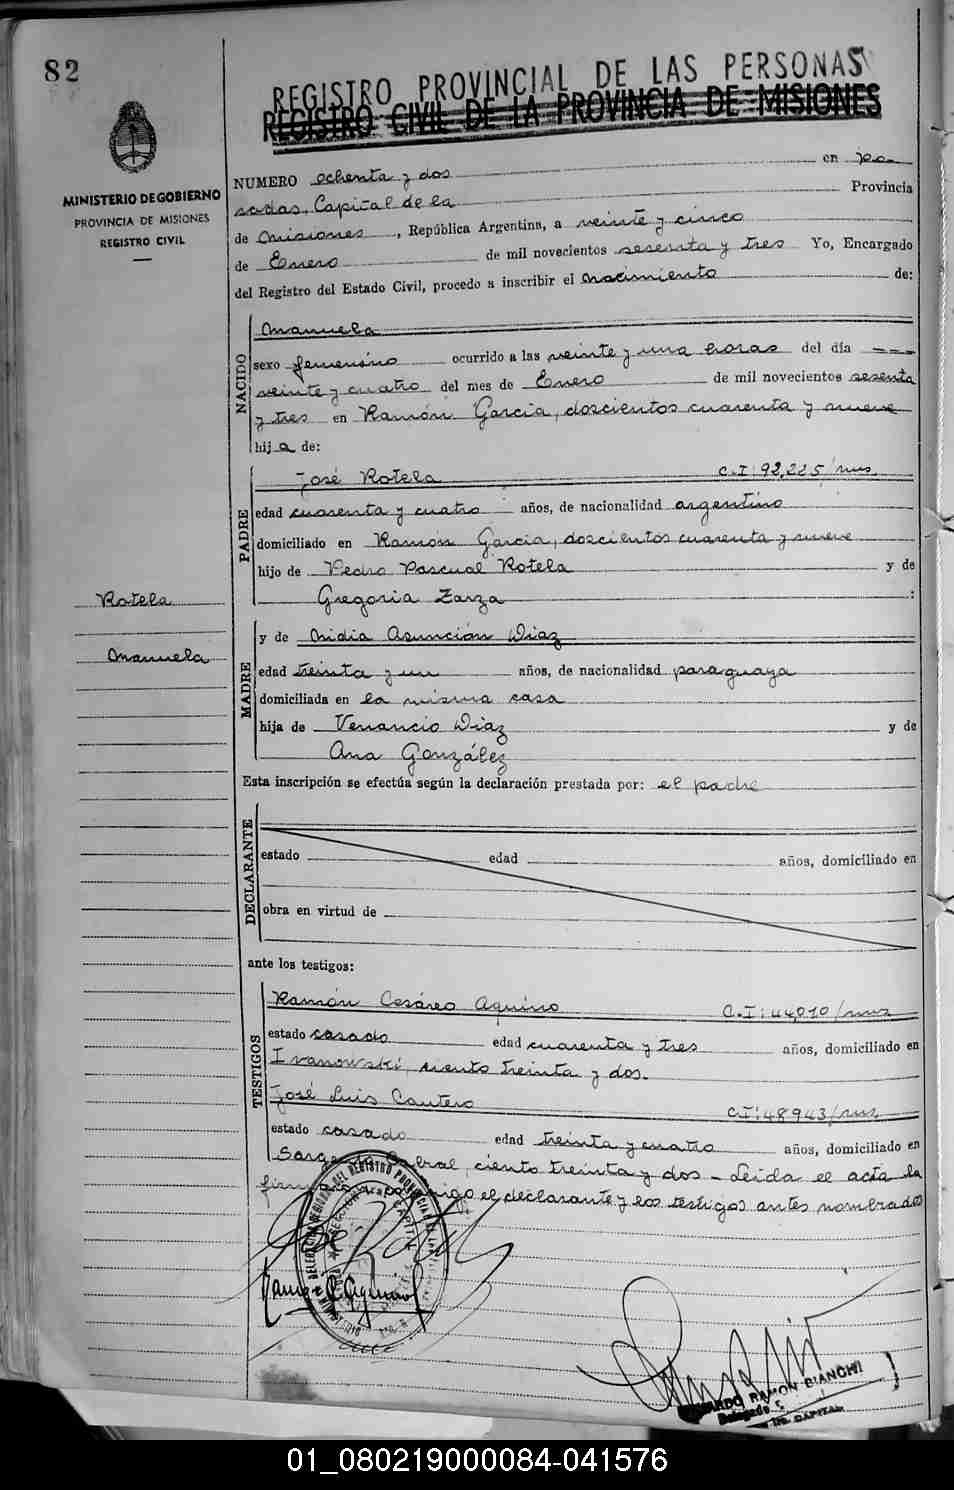 82
REGISTRO PROVINCIAL DE LAS PERSONAS
REGISTRO CIVIL DE LA PROVINCIA DE MISIONES
MINISTERIO DE GOBIERNO
PROVINCIA DE MISIONES
REGISTRO CIVIL
NUMERO ochenta y dos en Po-
sadas, Capital de la Provincia
de Misiones, República Argentina, a veinte y cinco
de Enero de mil novecientos sesenta y tres Yo, Encargado
del Registro del Estado Civil, procedo a inscribir el Nacimiento de:
NACIDO
Manuela
sexo femenino ocurrido a las veinte y una horas del día
veinte y cuatro del mes de Enero de mil novecientos sesenta
y tres en Ramón García, doscientos cuarenta y nueve
hija de:
PADRE
José Rotela C.I: 92,225/mns
edad cuarenta y cuatro años, de nacionalidad argentino
domiciliado en Ramón García, doscientos cuarenta y nueve
hijo de Pedro Pascual Rotela y de
Gregoria Zarza :
Rotela
Manuela
MADRE
y de Nidia Asunción Diaz
edad treinta y un años, de nacionalidad paraguaya
domiciliada en la misma casa
hija de Venancio Diaz y de
Ana González
Esta inscripción se efectúa según la declaración prestada por: el padre
DECLARANTE
estado edad años, domiciliado en
obra en virtud de
ante los testigos:
TESTIGOS
Ramón Cesáreo Aquino C.I: 44,010/mns
estado casado edad cuarenta y tres años, domiciliado en
Ivanowski, ciento treinta y dos.
José Luis Cantero C.I: 48943/mns
estado casado edad treinta y cuatro años, domiciliado en
Sargento Cabral, ciento treinta y dos - Leida el acta la
el declarante y los testigos antes nombrados
José Rotela
RAMON BIANCHI
Delegado
CAPITAL
01_080219000084-041576